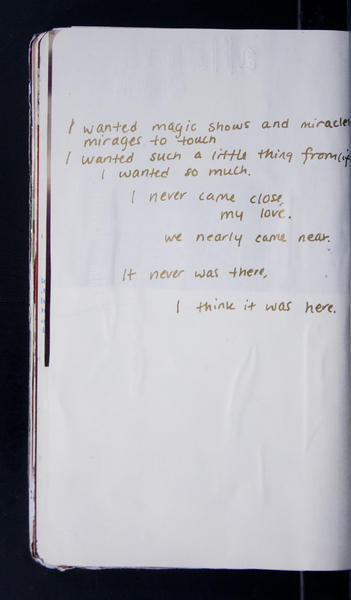 I wanted magic shows and miracles
mirages to touch
I wanted such a little thing from life
I wanted so much.
I never came close,
my love.
we nearly came near.
It never was there,
I think it was here.